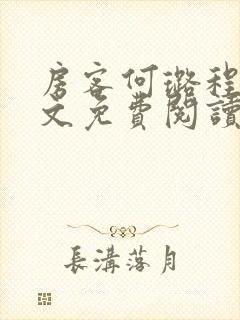 房客何璐程
文免費閱讀
長溝落月